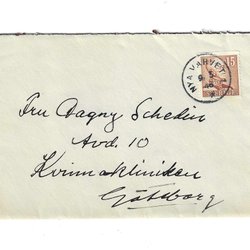 NYA VARVET 1
15
Fru Dagny Schedin
Avd. 10
Kvinnokliniken
Göteborg